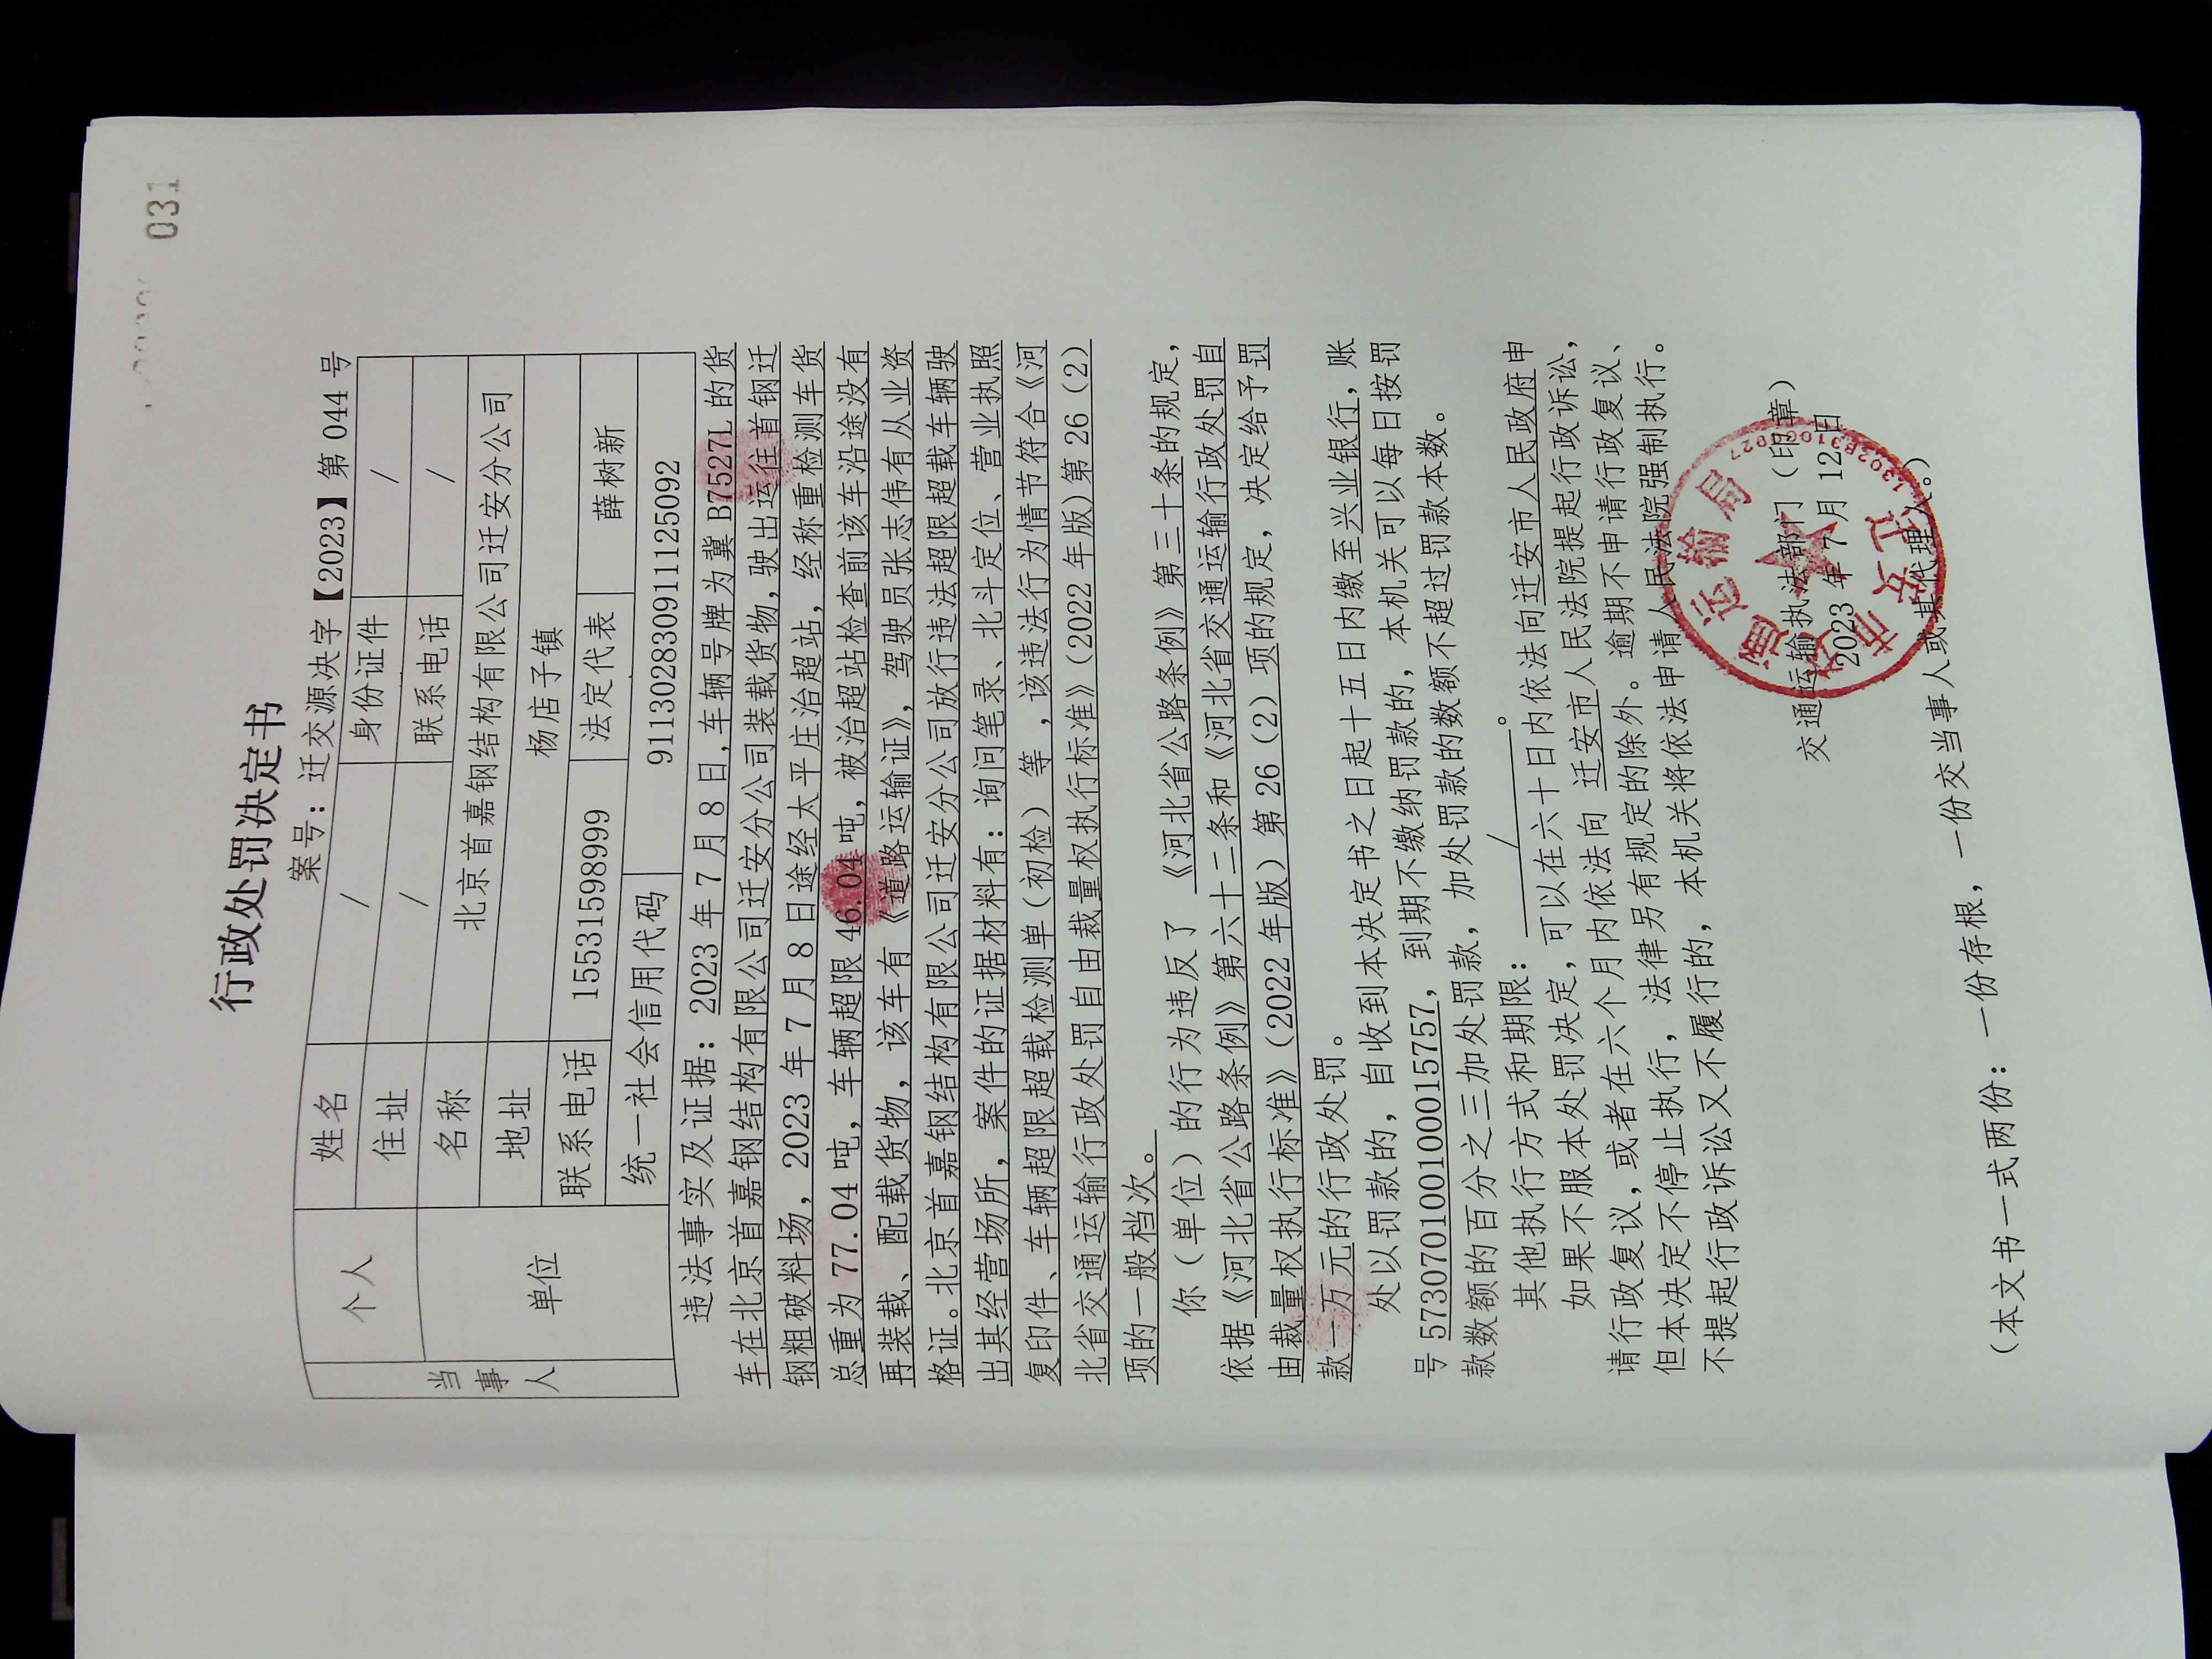 031
行政处罚决定书
案号：迁交源决字【2023】第 044 号
当事人 个人 姓名 / 身份证件 /
住址 / 联系电话 /
单位 名称 北京首嘉钢结构有限公司迁安分公司
地址 杨店子镇
联系电话 15531598999 法定代表 薛树新
统一社会信用代码 911302830911125092
违法事实及证据：2023 年 7 月 8 日，车辆号牌为冀 B7527L 的货
车在北京首嘉钢结构有限公司迁安分公司装载货物，驶出运往首钢迁
钢粗破料场，2023 年 7 月 8 日途经太平庄治超站，经称重检测车货
总重为 77.04 吨，车辆超限 46.04 吨，被治超站检查前该车沿途没有
再装载、配载货物，该车有《道路运输证》，驾驶员张志伟有从业资
格证。北京首嘉钢结构有限公司迁安分公司放行违法超限超载车辆驶
出其经营场所，案件的证据材料有：询问笔录、北斗定位、营业执照
复印件、车辆超限超载检测单（初检） 等 ，该违法行为情节符合《河
北省交通运输行政处罚自由裁量权执行标准》（2022 年版）第 26（2）
项的一般档次。
你（单位）的行为违反了 《河北省公路条例》第三十条的规定，
依据《河北省公路条例》第六十二条和《河北省交通运输行政处罚自
由裁量权执行标准》（2022 年版）第 26（2）项的规定，决定给予罚
款一万元的行政处罚。
处以罚款的，自收到本决定书之日起十五日内缴至兴业银行，账
号 573070100100015757，到期不缴纳罚款的，本机关可以每日按罚
款数额的百分之三加处罚款，加处罚款的数额不超过罚款本数。
其他执行方式和期限： / 。
如果不服本处罚决定，可以在六十日内依法向迁安市人民政府申
请行政复议，或者在六个月内依法向 迁安市人民法院提起行政诉讼，
但本决定不停止执行，法律另有规定的除外。逾期不申请行政复议、
不提起行政诉讼又不履行的，本机关将依法申请人民法院强制执行。
交通运输执法部门（印章）
2023 年 7 月 12 日
迁安市交通运输局
（本文书一式两份：一份存根，一份交当事人或其代理人。）